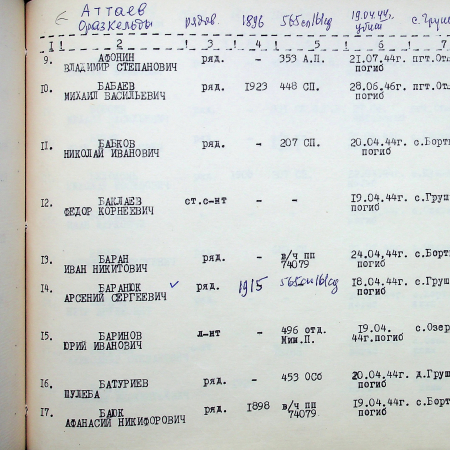 Аттаев
Оразкельды рядов. 1896 565сп161сд 19.04.44г. убит с.Груш
1 ! 2 ! 3 ! 4 ! 5 ! 6 ! 7
9. АФОНИН ряд. - 353 А.П. 21.07.44г. пгт.От
ВЛАДИМИР СТЕПАНОВИЧ погиб
10. БАБАЕВ ряд. 1923 448 СП. 28.06.46г. пгт.От
МИХАИЛ ВАСИЛЬЕВИЧ погиб
11. БАБКОВ ряд. - 207 СП. 20.04.44г. с.Борт
НИКОЛАЙ ИВАНОВИЧ погиб
12. БАКЛАЕВ ст.с-нт - - 19.04.44г. с.Груш
ФЕДОР КОРНЕЕВИЧ погиб
13. БАРАН ряд. - в/ч пп 24.04.44г. с.Борт
ИВАН НИКИТОВИЧ 74079 погиб
14. БАРАНЮК ряд. 1915 565сп161сд 18.04.44г. с.Груш
АРСЕНИЙ СЕРГЕЕВИЧ погиб
15. БАРИНОВ л-нт - 496 отд. 19.04. с.Озер
ЮРИЙ ИВАНОВИЧ Мин.П. 44г.погиб
16. БАТУРИЕВ ряд. - 453 ОСб 20.04.44г. д.Груш
ШУЛЕБА погиб
17. БАЮК ряд. 1898 в/ч пп 19.04.44г. с.Борт
АФАНАСИЙ НИКИФОРОВИЧ 74079 погиб